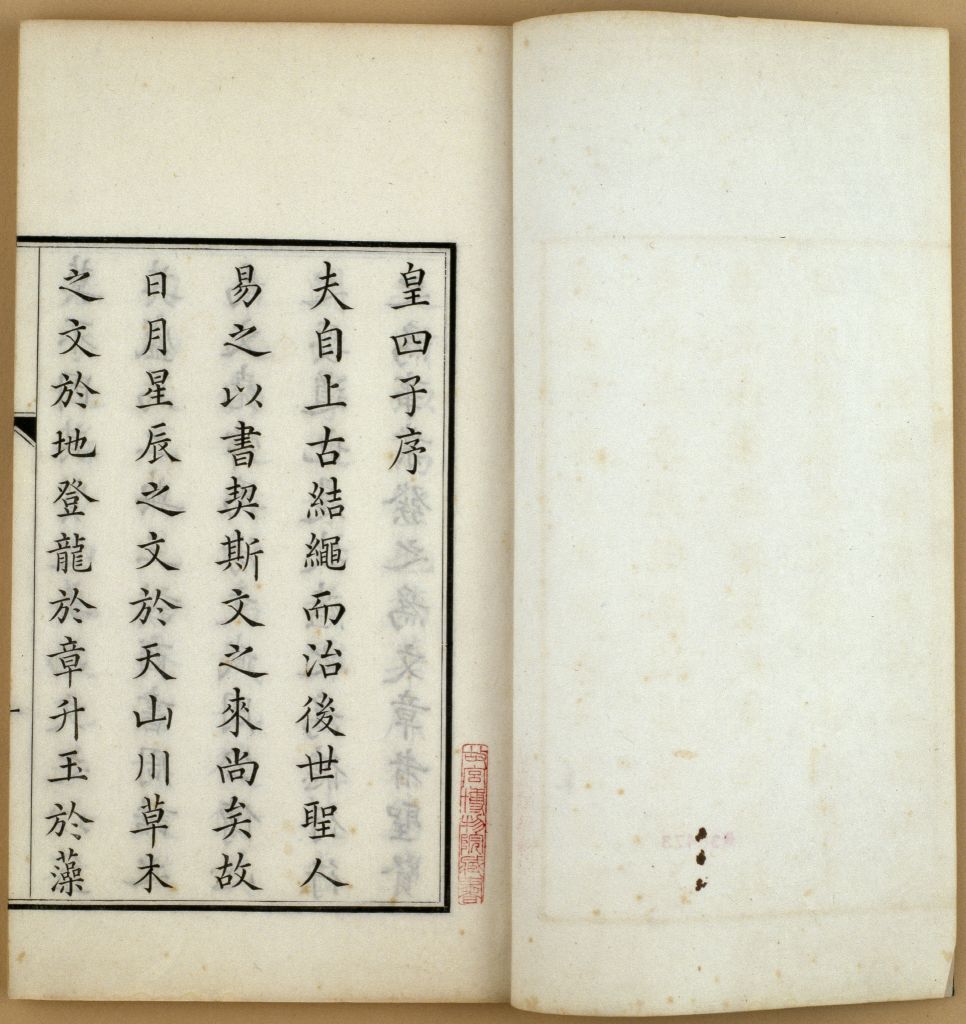 皇四子序
夫自上古結繩而治後世聖人
易之以書契斯文之來尚矣故
日月星辰之文於天山川草木
之文於地登龍於章升玉於藻
故宮博物院藏書